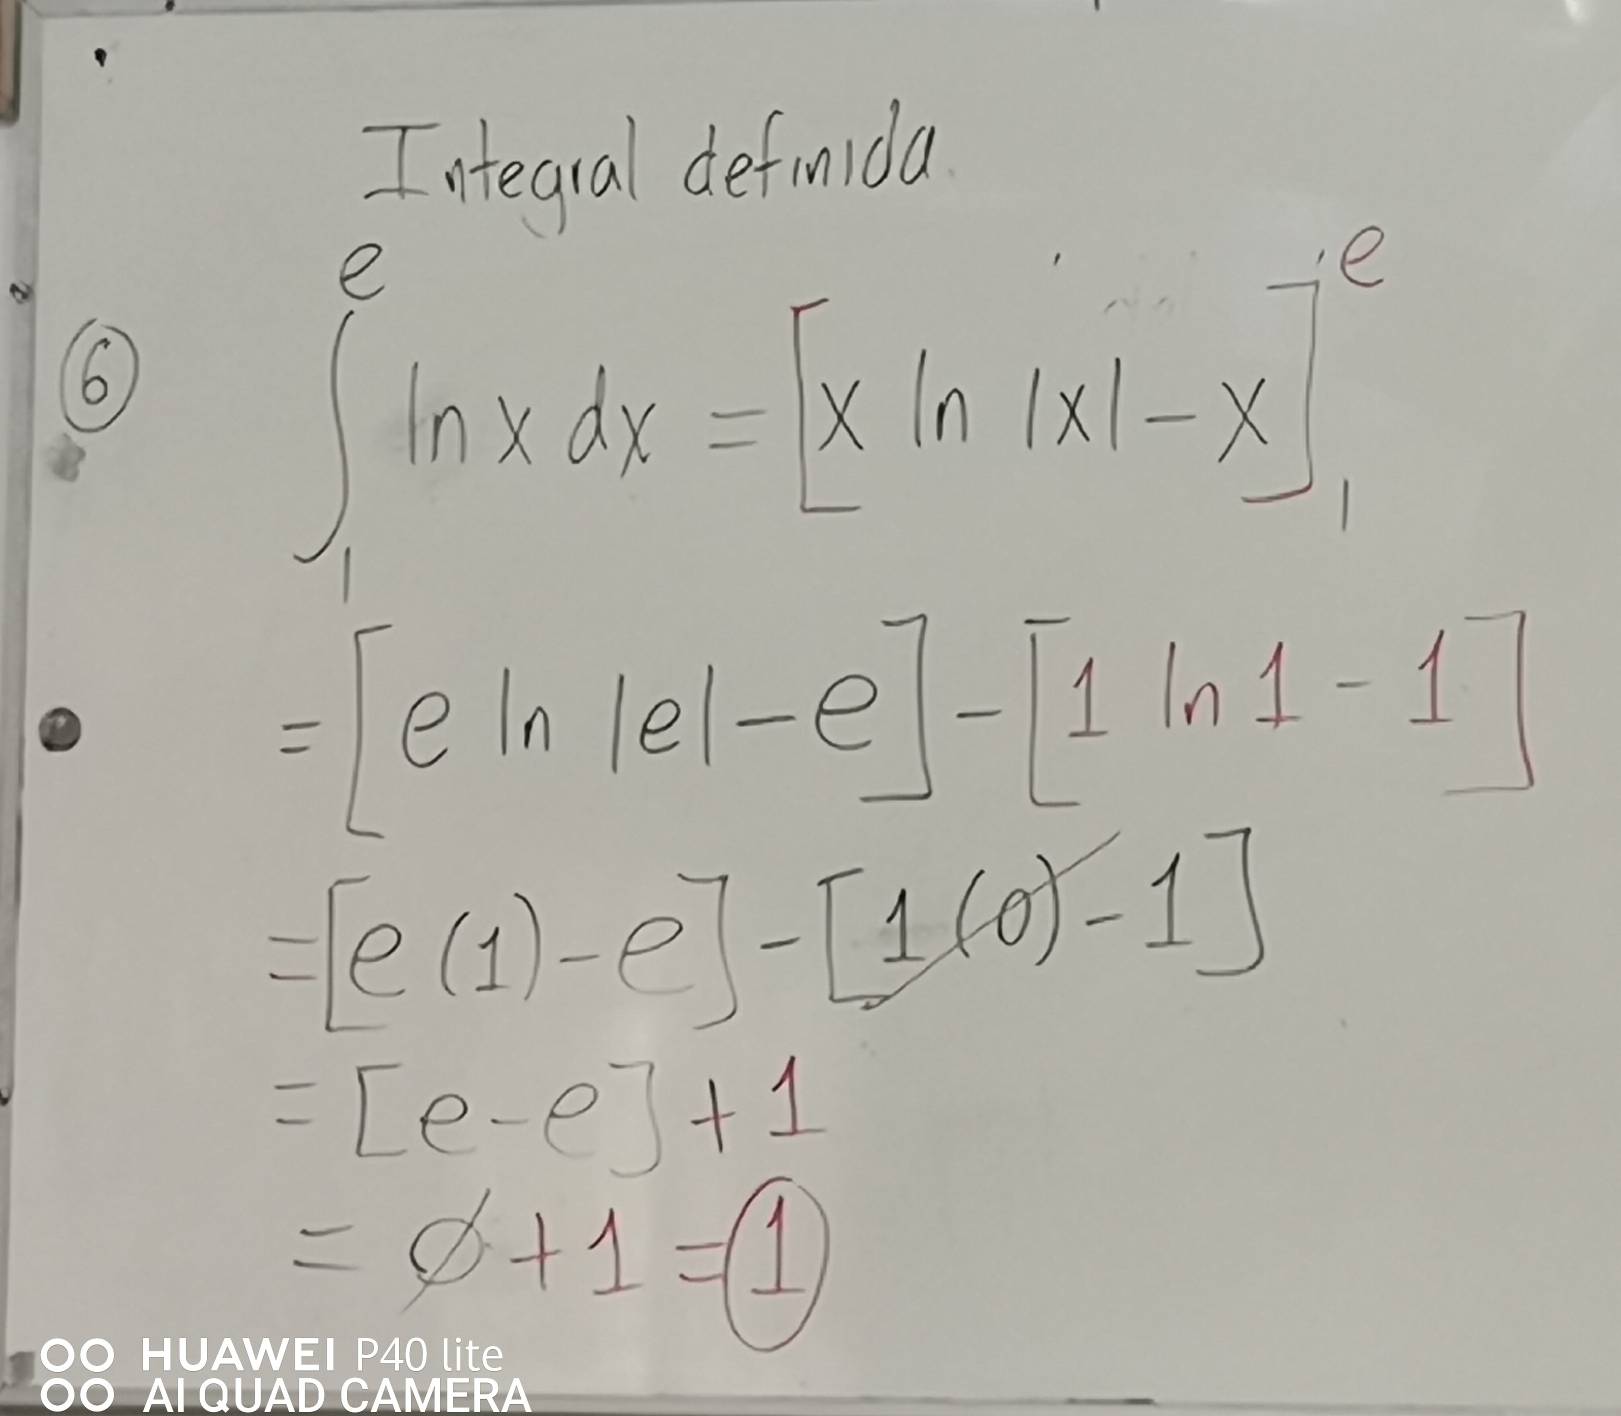 Integral definida.
⑥ ∫₁ᵉ ln x dx = [x ln |x| - x]₁ᵉ
= [e ln |e| - e] - [1 ln 1 - 1]
= [e (1) - e] - [1 (0) - 1]
= [e - e] + 1
= 0 + 1 = 1
HUAWEI P40 lite
AI QUAD CAMERA